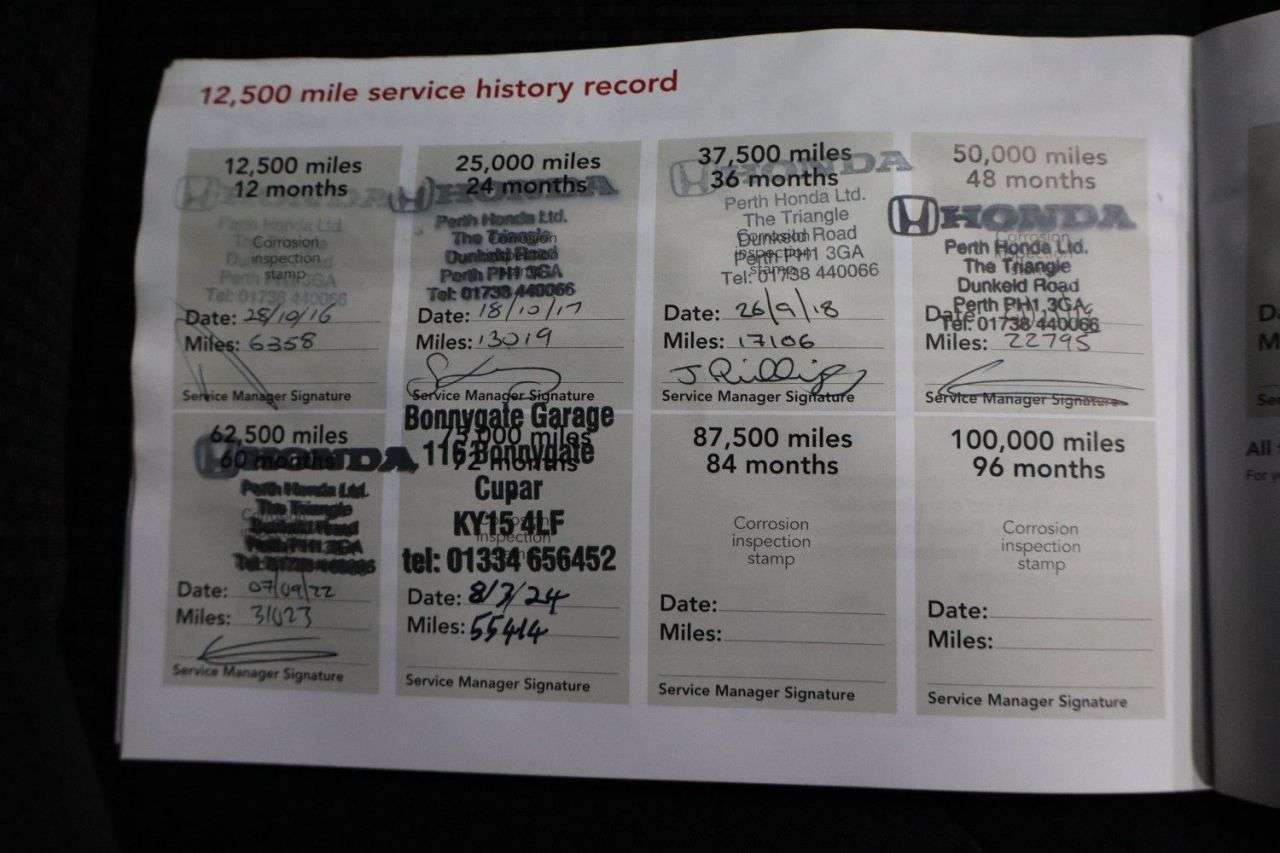 12,500 mile service history record
12,500 miles
12 months
HONDA
Perth Honda Ltd.
Corrosion
inspection
stamp
Tel: 01738 440066
Date: 28/10/16
Miles: 6358
Service Manager Signature
25,000 miles
24 months
HONDA
Perth Honda Ltd.
The Triangle
Dunkeld Road
Perth PH1 3GA
Tel: 01738 440066
Date: 18/10/17
Miles: 13019
Service Manager Signature
37,500 miles
36 months
HONDA
Perth Honda Ltd.
The Triangle
Corrosion
Dunkeld Road
inspection
Perth PH1 3GA
stamp
Tel: 01738 440066
Date: 26/9/18
Miles: 17106
J Phillips
Service Manager Signature
50,000 miles
48 months
HONDA
Corrosion
Perth Honda Ltd.
The Triangle
Dunkeld Road
Perth PH1 3GA
Date:
Tel: 01738 440066
Miles: 22795
Service Manager Signature
62,500 miles
60 months
HONDA
Perth Honda Ltd.
The Triangle
Dunkeld Road
Perth PH1 3GA
Tel: 01738 440066
Date: 07/09/22
Miles: 31023
Service Manager Signature
Bonnygate Garage
75,000 miles
116 Bonnygate
72 months
Cupar
KY15 4LF
Corrosion
inspection
tel: 01334 656452
Date: 8/3/24
Miles: 55414
Service Manager Signature
87,500 miles
84 months
Corrosion
inspection
stamp
Date:
Miles:
Service Manager Signature
100,000 miles
96 months
Corrosion
inspection
stamp
Date:
Miles:
Service Manager Signature
All